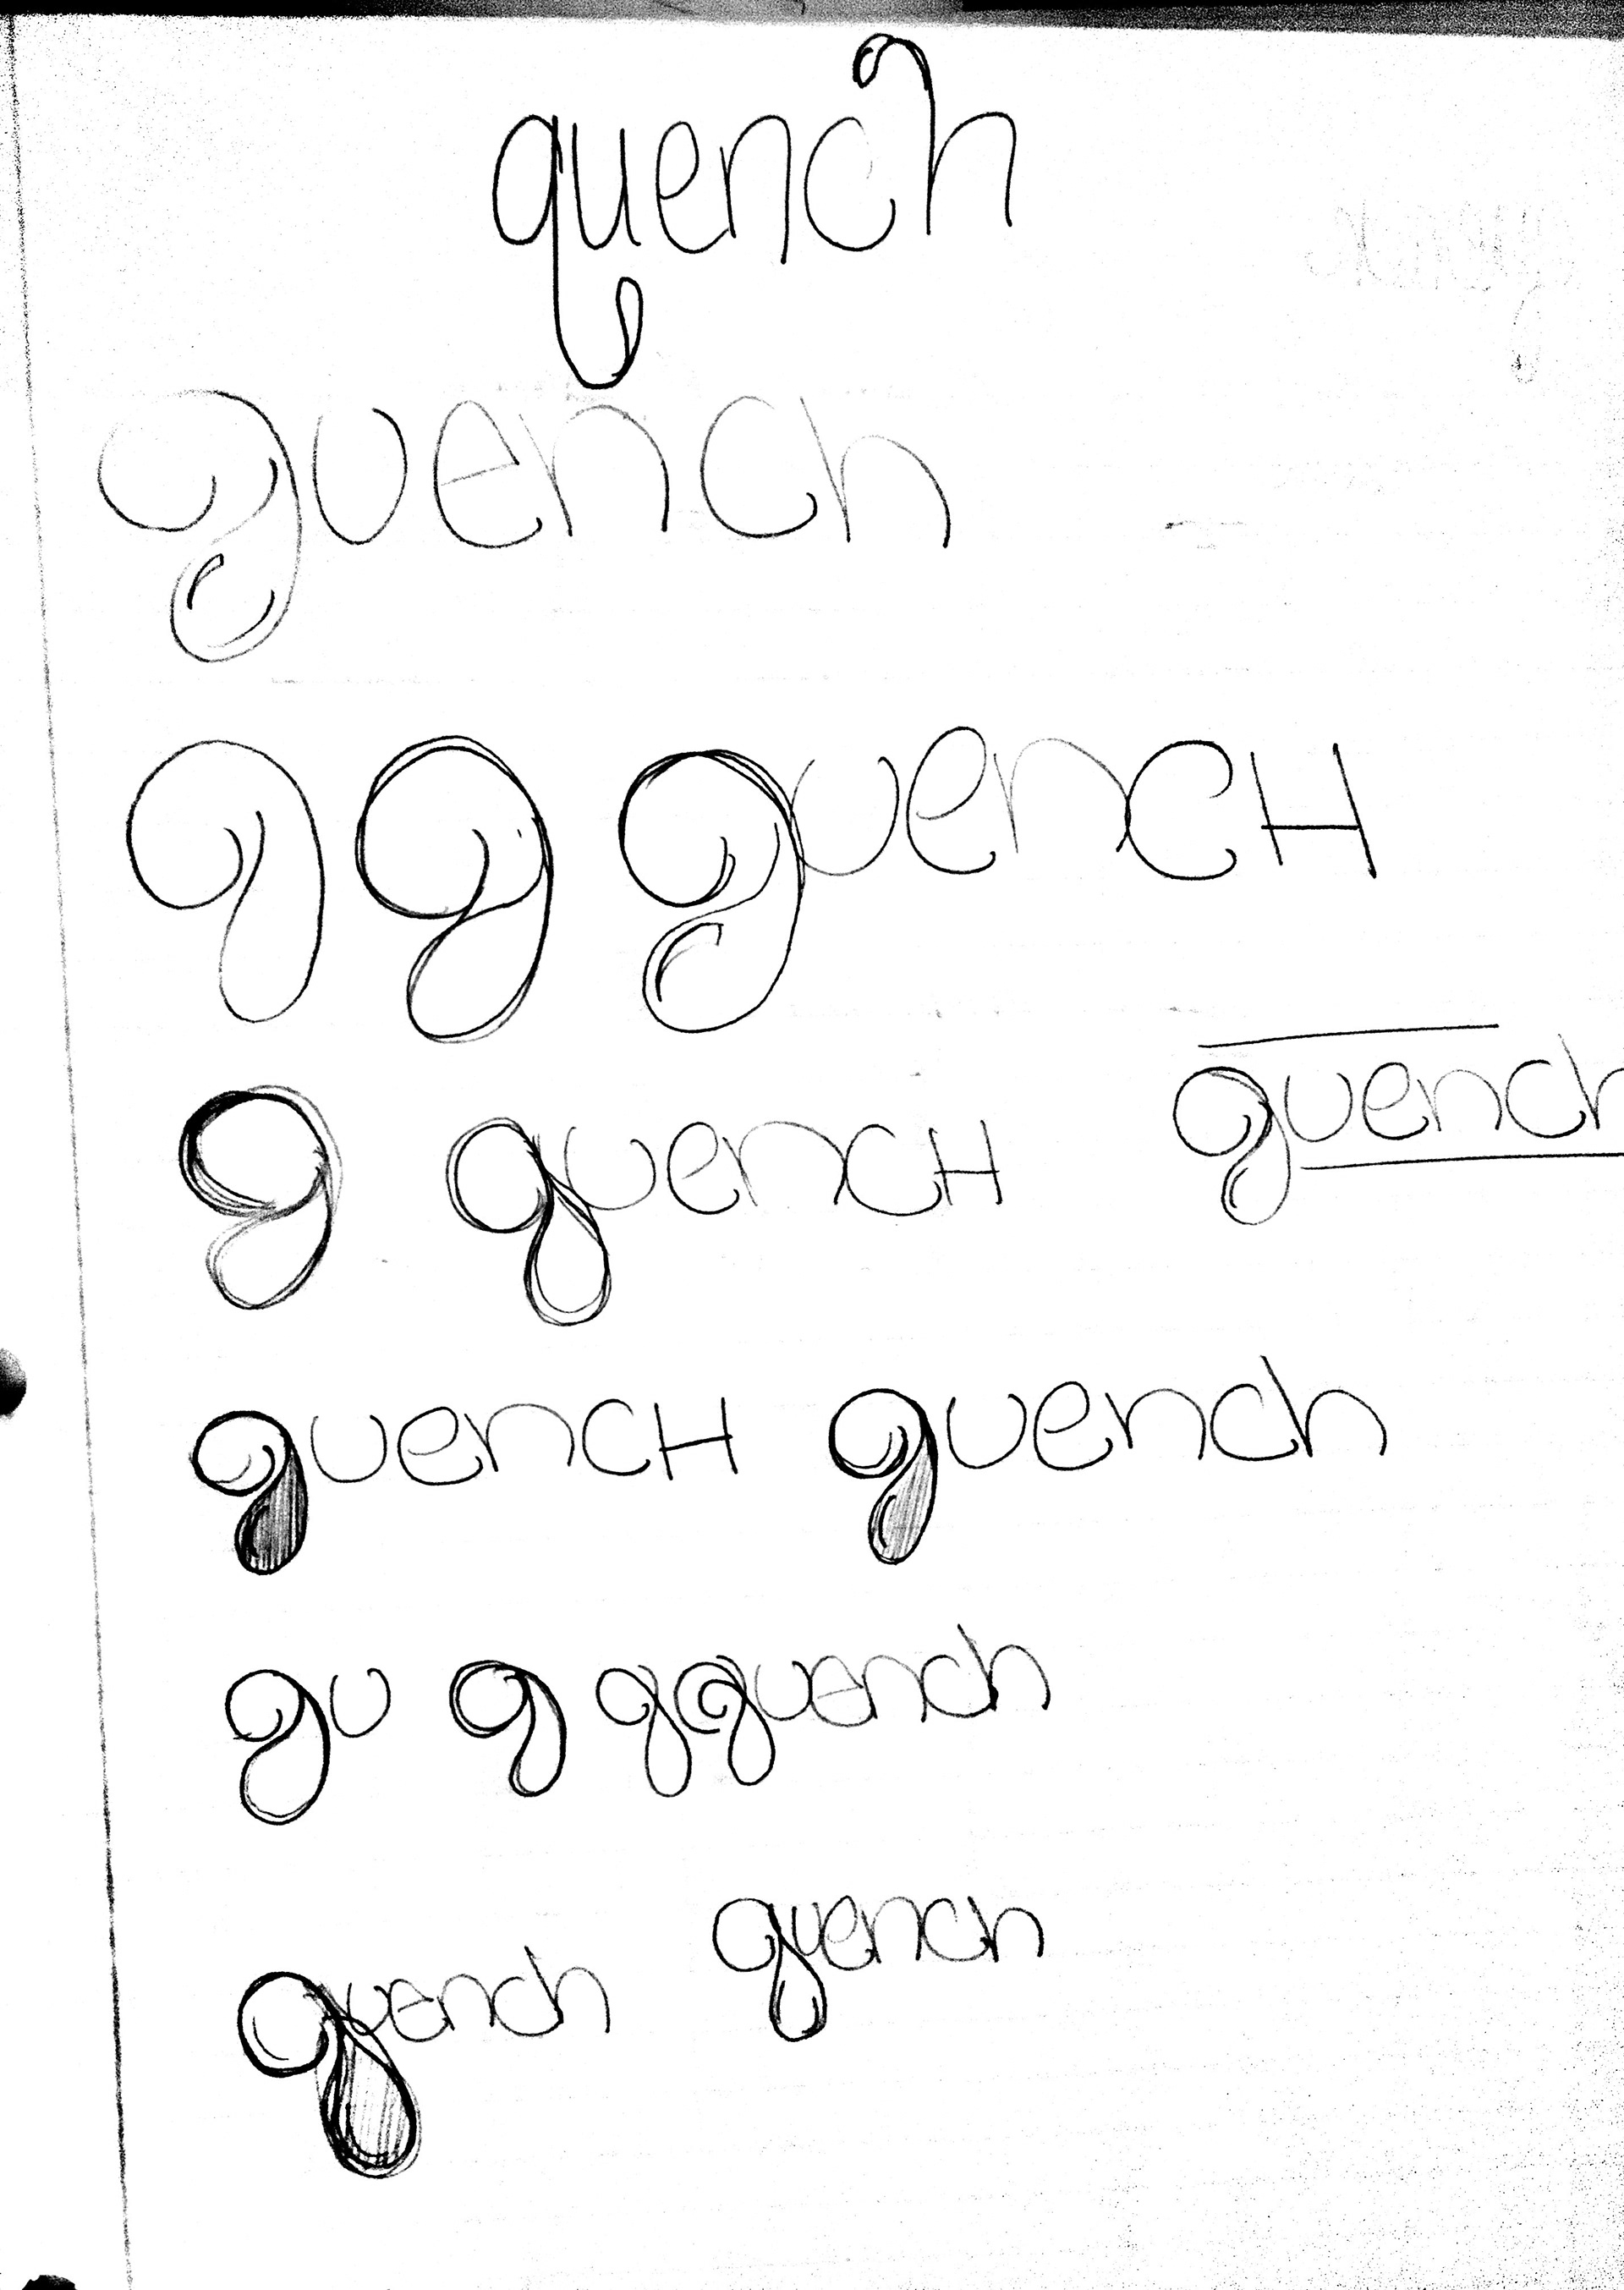 quench
quench
q q quencH
q quencH quench
quencH quench
qu q q q quench
quench quench